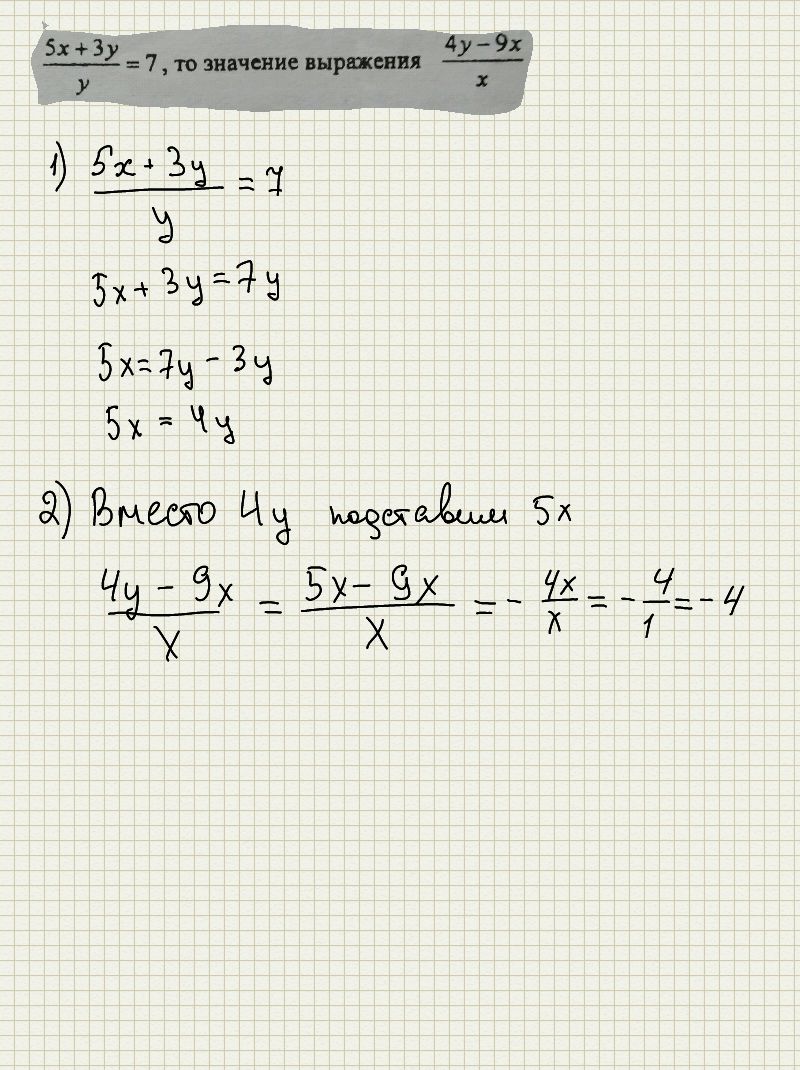 (5x + 3y)/y = 7, то значение выражения (4y − 9x)/x
1) (5x + 3y)/y = 7
5x + 3y = 7y
5x = 7y − 3y
5x = 4y
2) Вместо 4y подставим 5x
(4y − 9x)/x = (5x − 9x)/x = − 4x/x = − 4/1 = − 4